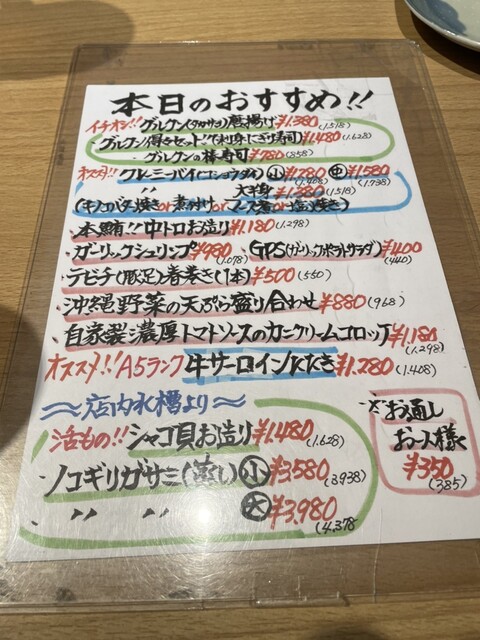 本日のおすすめ!!
イチオシ!! グルクン(タカサゴ)唐揚げ¥1.380(1.518)
・グルクン得々セット!!(刺身にぎり寿司)¥1.480(1.628)
・グルクンの棒寿司¥780(858)
オススメ!! クレニーバイ(コショウダイ)小¥1.280(1.408)中¥1.580(1.738)
〃 大半身¥1.380(1.518)
(キノコバタ焼きor煮付けorマース煮or塩焼き)
・本鮪!!中トロお造り¥1.180(1.298)
・ガーリックシュリンプ¥980(1.078)・GPS(ガーリックポテトサラダ)¥400(440)
・テビチ(豚足)春巻き(1本)¥500(550)
・沖縄野菜の天ぷら盛り合わせ¥880(968)
・自家製濃厚トマトソースのカニクリームコロッケ¥1.180(1.298)
オススメ!! A5ランク 牛サーロインたたき¥1.280(1.408)
〜店内水槽より〜
活もの!!シャコ貝お造り¥1.480(1.628)
ノコギリガザミ(蒸し)小¥3.580(3.938)
〃 〃 大¥3.980(4.378
※お通し
お一人様
¥350
(385)